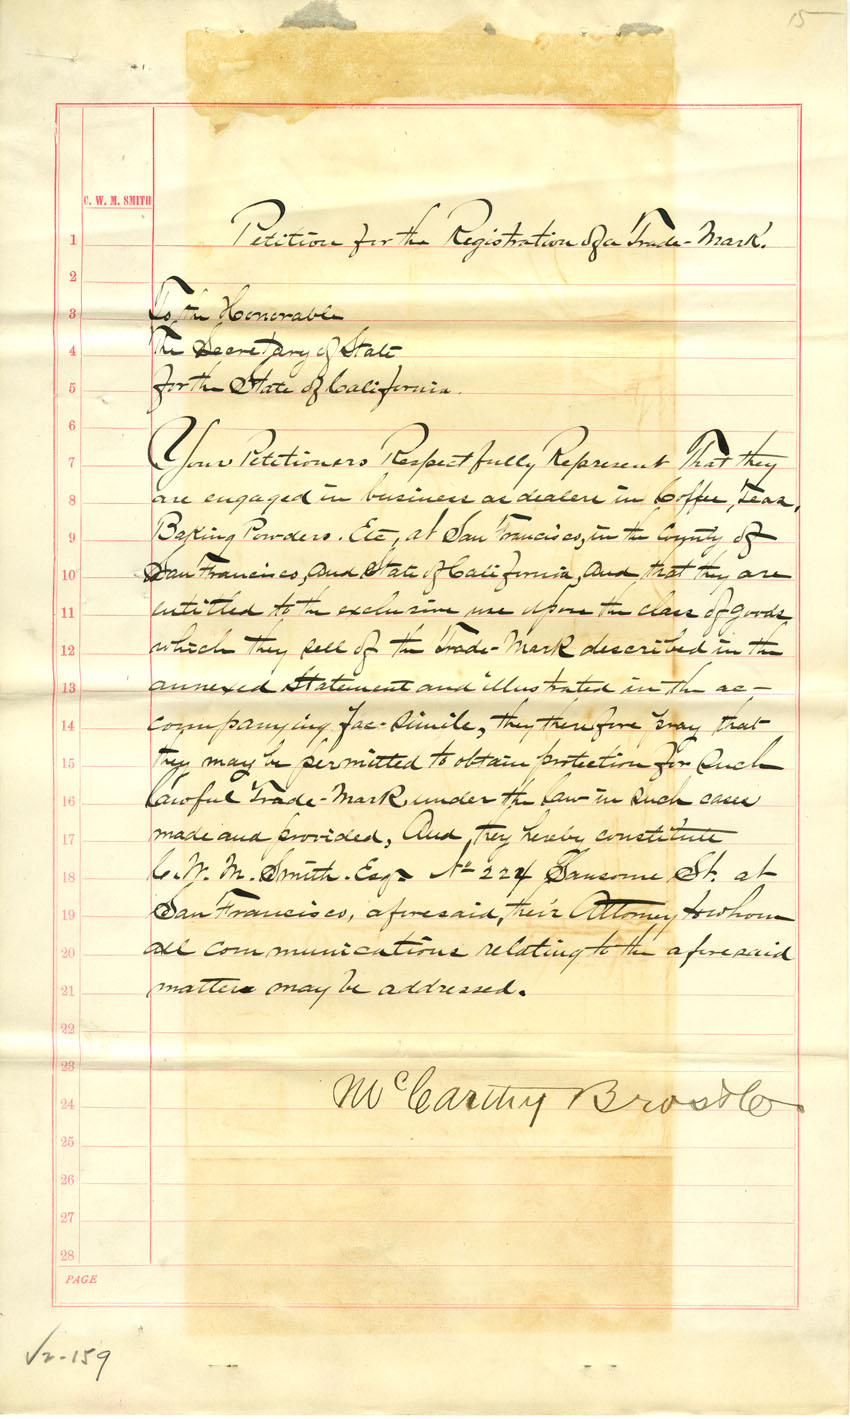 15
C. W. M. SMITH
1 Petition for the Registration of a Trade-Mark.
2
3 To the Honorable
4 The Secretary of State
5 for the State of California.
6
7 Your Petitioners Respectfully Represent That they
8 are engaged in business as dealers in Coffee, Teas,
9 Baking Powders. Etc, at San Francisco, in the County of
10 San Francisco, And State of California, And that they are
11 entitled to the exclusive use upon the class of goods
12 which they sell of the Trade-Mark described in the
13 annexed Statement and illustrated in the ac-
14 companying fac-simile, they therefore pray that
15 they may be permitted to obtain protection for such
16 lawful Trade-Mark, under the law in such cases
17 made and provided, And, they hereby constitute
18 C. W. M. Smith. Esq. No 224 Sansome St. at
19 San Francisco, aforesaid, their Attorney to whom
20 all communications relating to the aforesaid
21 matter may be addressed.
22
23
24 McCarthy Bros & Co
25
26
27
28
PAGE
√2-159